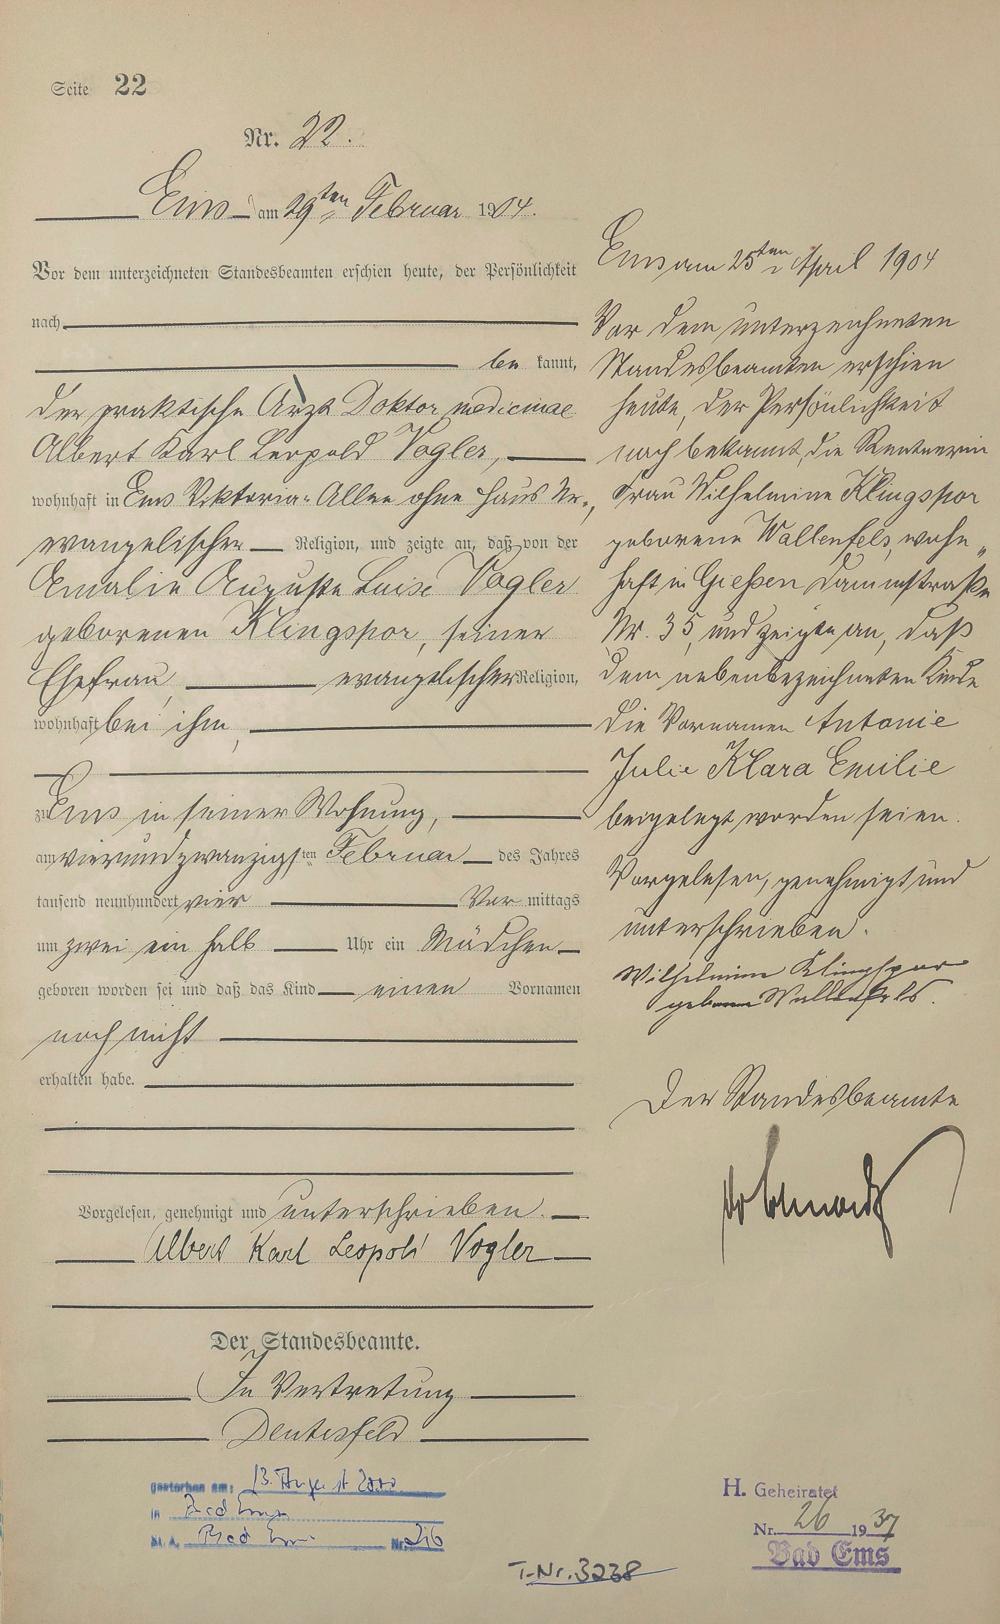 Seite 22
Nr. 22.
Ems am 29ten Februar 1904.
Vor dem unterzeichneten Standesbeamten erschien heute, der Persönlichkeit
nach
be kannt,
der praktische Arzt Doktor medicinae
Albert Karl Leopold Vogler,
wohnhaft in Ems Viktoria-Allee ohne Haus Nr.,
evangelischer Religion, und zeigte an, daß von der
Amalie Auguste Luise Vogler
geborenen Klingspor, seiner
Ehefrau, evangelischer Religion,
wohnhaft bei ihm,
zu Ems in seiner Wohnung,
am vierundzwanzigsten Februar des Jahres
tausend neunhundert vier Vor mittags
um zwei ein halb Uhr ein Mädchen
geboren worden sei und daß das Kind einen Vornamen
noch nicht
erhalten habe.
Vorgelesen, genehmigt und unterschrieben.
Albert Karl Leopold Vogler
Der Standesbeamte.
In Vertretung
gestorben am: 13. August 2000
in Bad Ems
St. A. Bad Ems Nr. 216
Ems am 25ten April 1904
Vor dem unterzeichneten
Standesbeamten erschien
heute, der Persönlichkeit
nach bekannt, die Rentnerin
Frau Wilhelmine Klingspor
geborene Wallenfels, wohn„
haft in Gießen Dammstraße
Nr. 35, und zeigte an, daß
dem nebenbezeichneten Kinde
die Vornamen Antonie
Julie Klara Emilie
beigelegt worden seien.
Vorgelesen, genehmigt und
unterschrieben.
Wilhelmine Klingspor
geborene Wallenfels.
Der Standesbeamte
H. Geheiratet
Nr. 26 1937
Bad Ems
T-Nr. 3238